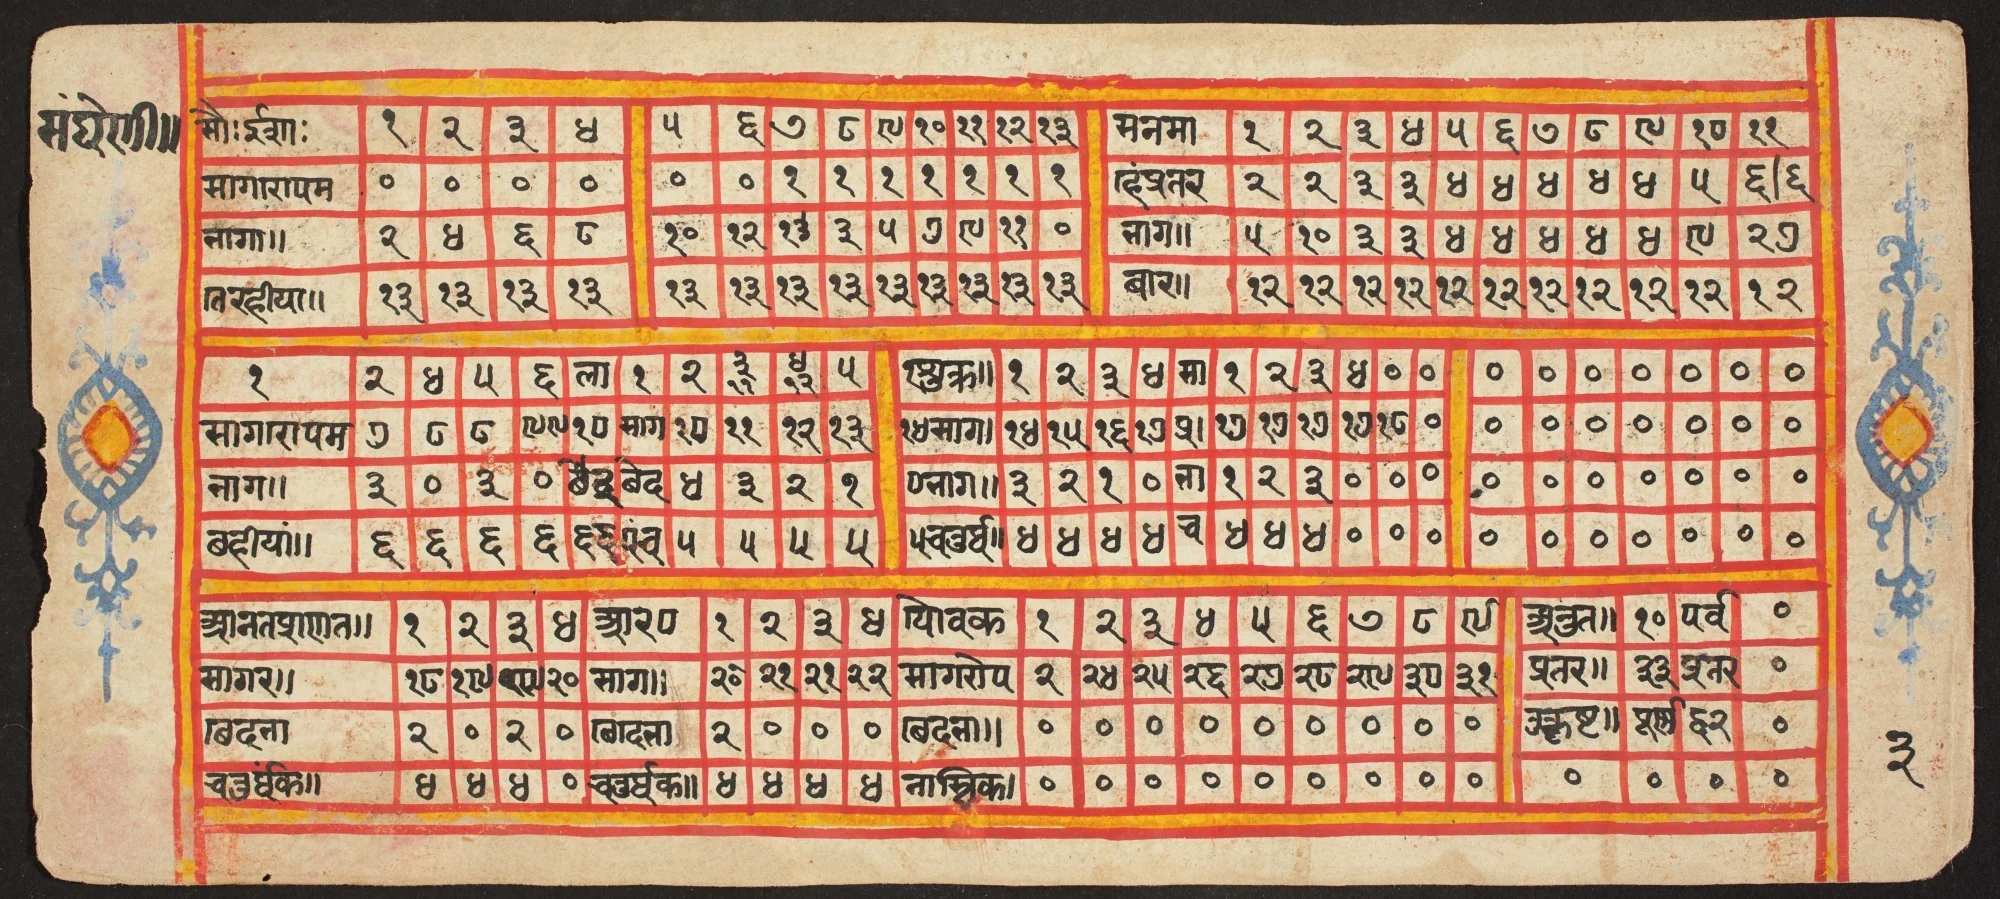 संघेरणी॥
सौःईशाः १ २ ३ ४ ५ ६ ७ ८ ९ १० ११ १२ १३ सनमा १ २ ३ ४ ५ ६ ७ ८ ९ १० ११
सागारापम ० ० ० ० ० ० १ १ १ १ १ १ १ हंप्रतर २ २ ३ ३ ४ ४ ४ ४ ४ ५ ६/६
नागा॥ २ ४ ६ ८ १० १२ १३ ३ ५ ७ ९ ११ ० नाग॥ ५ १० ३ ३ ४ ४ ४ ४ ४ ९ २७
तिरहीया॥ १३ १३ १३ १३ १३ १३ १३ १३ १३ १३ १३ १३ १३ बार॥ १२ १२ १२ १२ १२ १२ १२ १२ १२ १२ १२
१ २ ४ ५ ६ ला १ २ ३ ४ ५ शुक्र॥ १ २ ३ ४ सा १ २ ३ ४ ० ० ० ० ० ० ० ० ०
सागारापम ७ ८ ८ ९९ १० साग १० ११ १२ १३ १४साग। १४ १५ १६ १७ प्र। १७ १७ १७ १७ १८ ० ० ० ० ० ० ० ०
नाग॥ ३ ० ३ ० बेद ४ ३ २ १ ०नाग॥ ३ २ १ ० ना १ २ ३ ० ० ० ० ० ० ० ० ० ०
बहीयां॥ ६ ६ ६ ६ ६६ ५ ५ ५ ५ ५चतुर्थ॥ ४ ४ ४ ४ च ४ ४ ४ ० ० ० ० ० ० ० ० ० ०
आनतप्राणत॥ १ २ ३ ४ आरण १ २ ३ ४ ग्रिवक १ २ ३ ४ ५ ६ ७ ८ ९ अनुत॥ १० पर्व ०
सागर॥ १८ १९ १९ २० साग॥ २० २१ २१ २२ सागरोप २ २४ २५ २६ २७ २८ २९ ३० ३१ प्रतर॥ ३३ प्रतर ०
बिदना २ ० २ ० बिदना २ ० ० ० बिदना॥ ० ० ० ० ० ० ० ० ० उत्कृष्ट॥ पूर्ण ०
चतुर्थक॥ ४ ४ ४ ० चतुर्थक॥ ४ ४ ४ ४ नास्तिक। ० ० ० ० ० ० ० ० ० ० ० ० ०
३